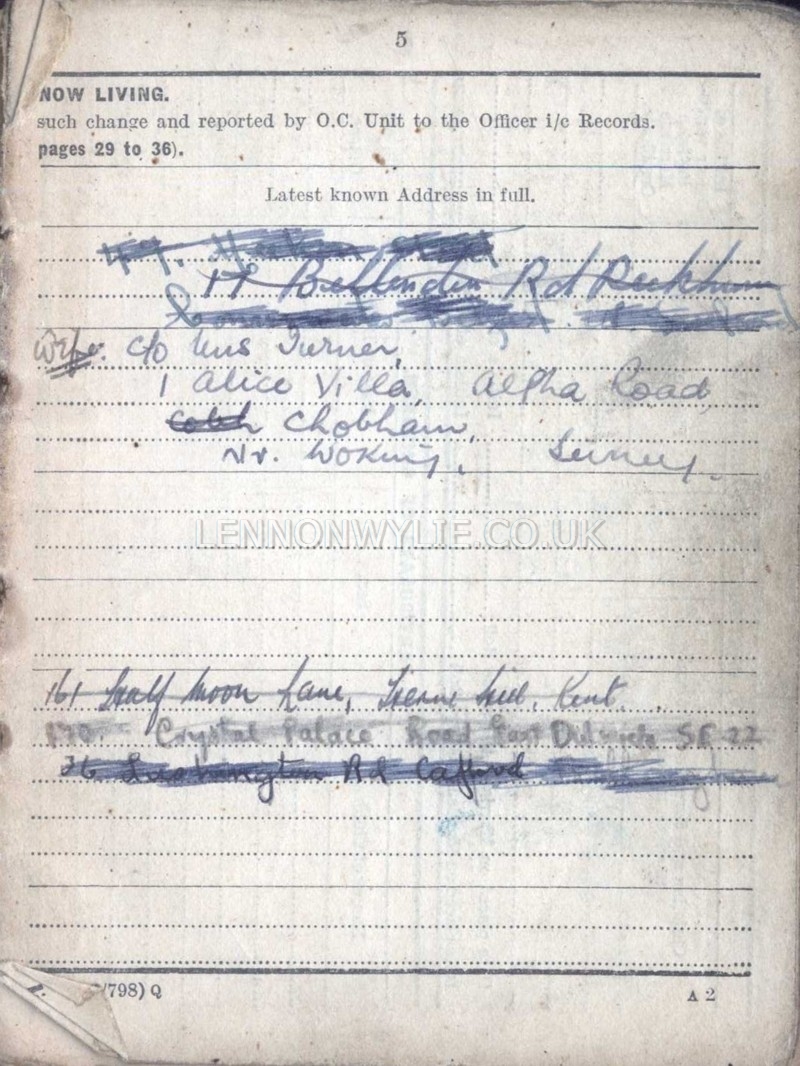 5
NOW LIVING.
such change and reported by O.C. Unit to the Officer i/c Records.
pages 29 to 36).
Latest known Address in full.
Bellenden Rd Peckham
Wife. c/o Mrs Turner,
1 Alice Villa, Alpha Road
Chobham,
Nr. Woking, Surrey.
LENNONWYLIE.CO.UK
161 Half Moon Lane, Herne Hill, Kent.
Crystal Palace Road East Dulwich SE 22
36 Lushington Rd Catford
/798) Q
A 2